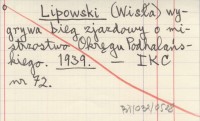 Lipowski (Wisła) wy-
grywa bieg zjazdowy o mi-
strzostwo Okręgu Podhalańs-
kiego. 1939. — IKC
nr 72.